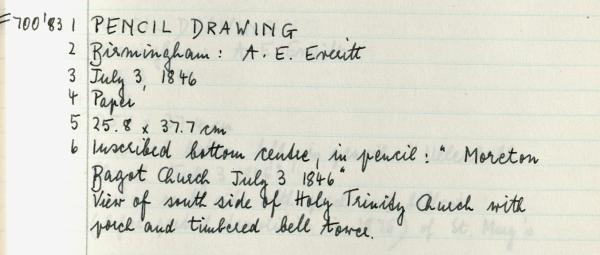 =700'83 1 PENCIL DRAWING
2 Birmingham: A. E. Everitt
3 July 3, 1846
4 Paper
5 25.8 x 37.7 cm
6 Inscribed bottom centre, in pencil: "Moreton
Bagot Church July 3 1846"
View of south side of Holy Trinity Church with
porch and timbered bell tower.